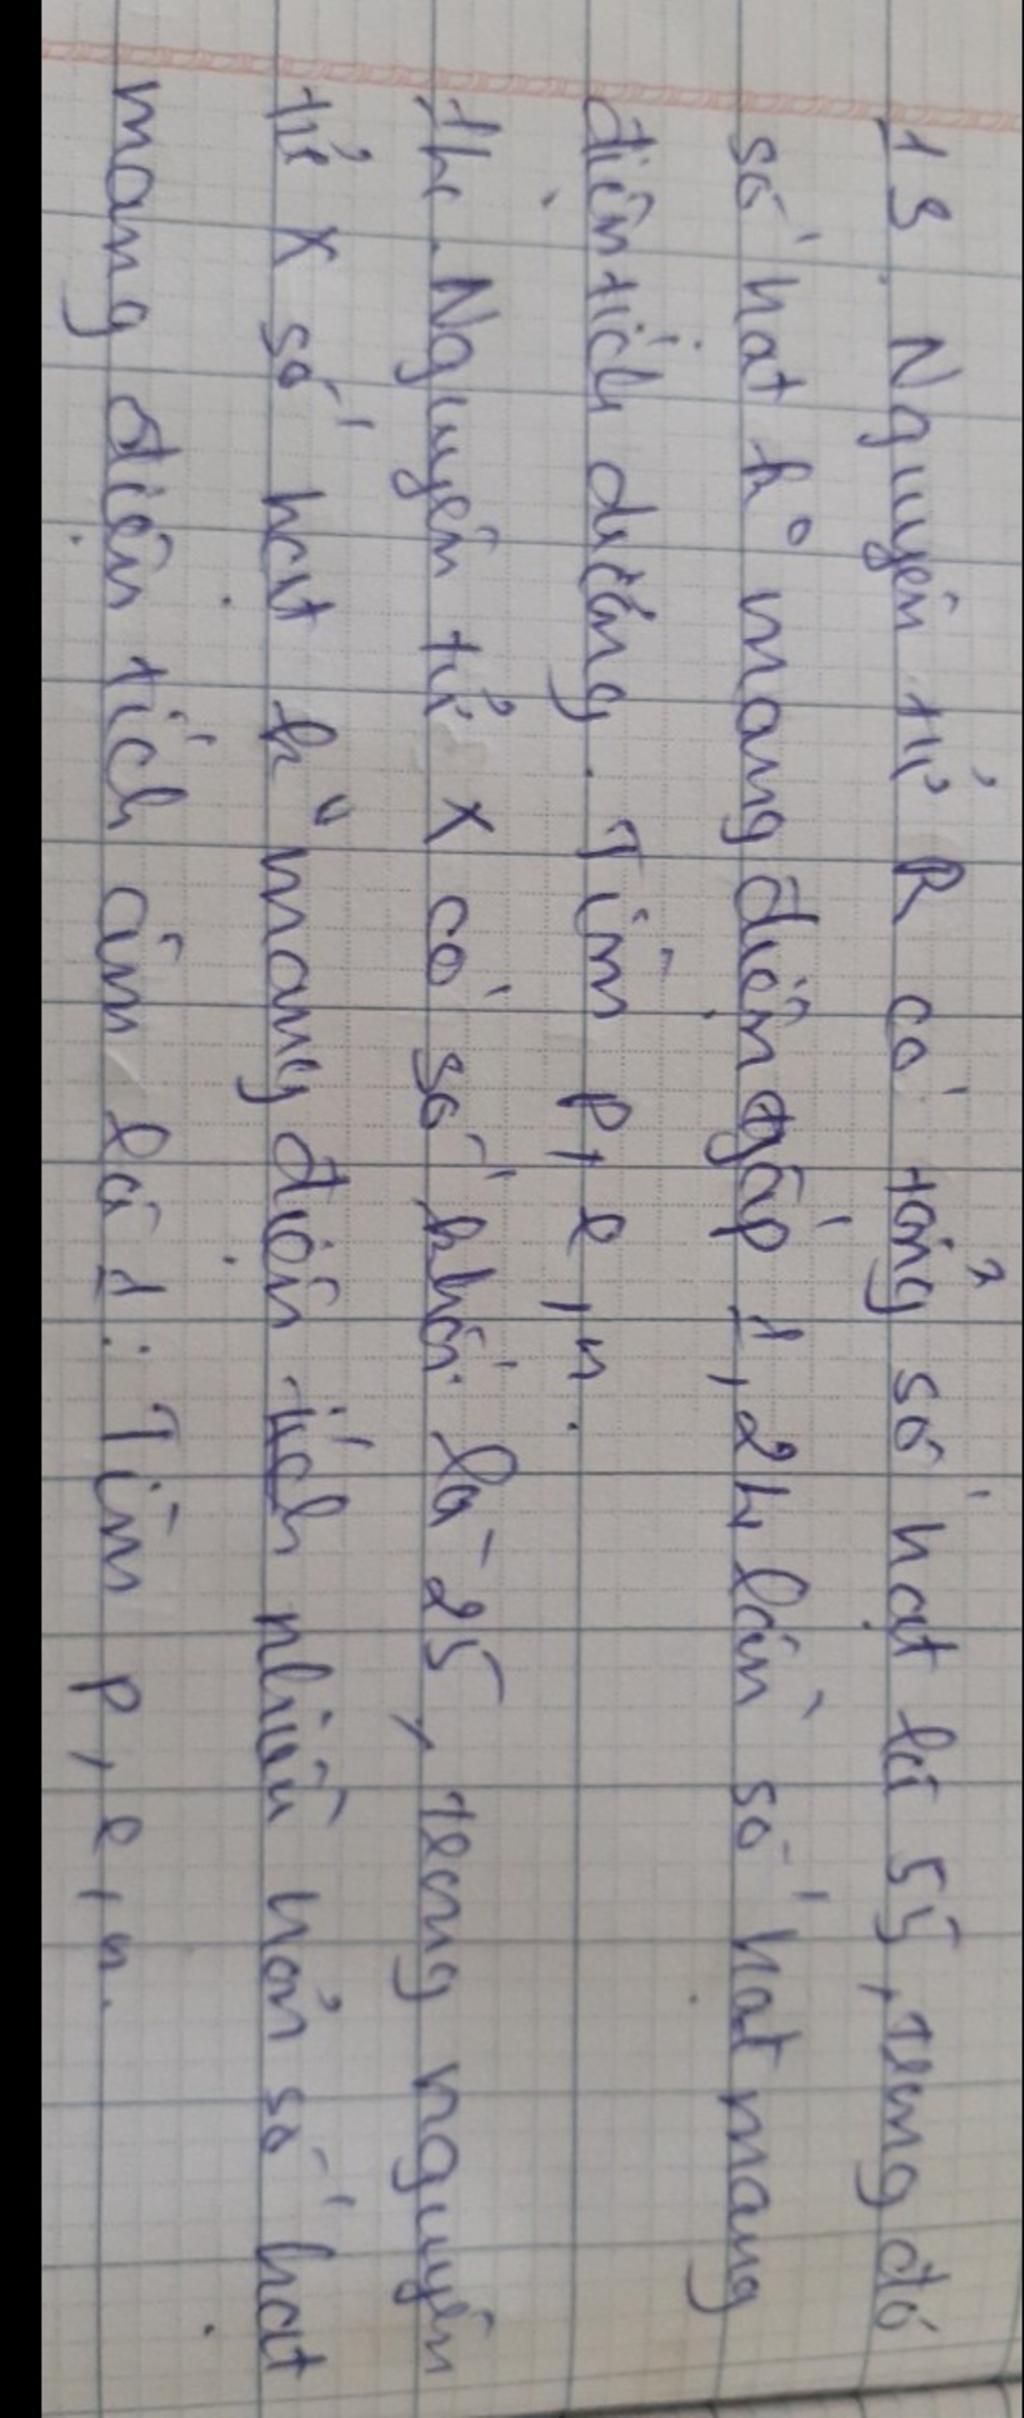 13. Nguyên tử R có tổng số hạt là 55, trong đó
số hạt k° mang điện gấp 1,24 lần số hạt mang
điện tích dương. Tìm p, e, n.
14. Nguyên tử X có số khối là 25, trong nguyên
tử X số hạt k° mang điện tích nhiều hơn số hạt
mang điện tích âm là 1. Tìm p, e, n.